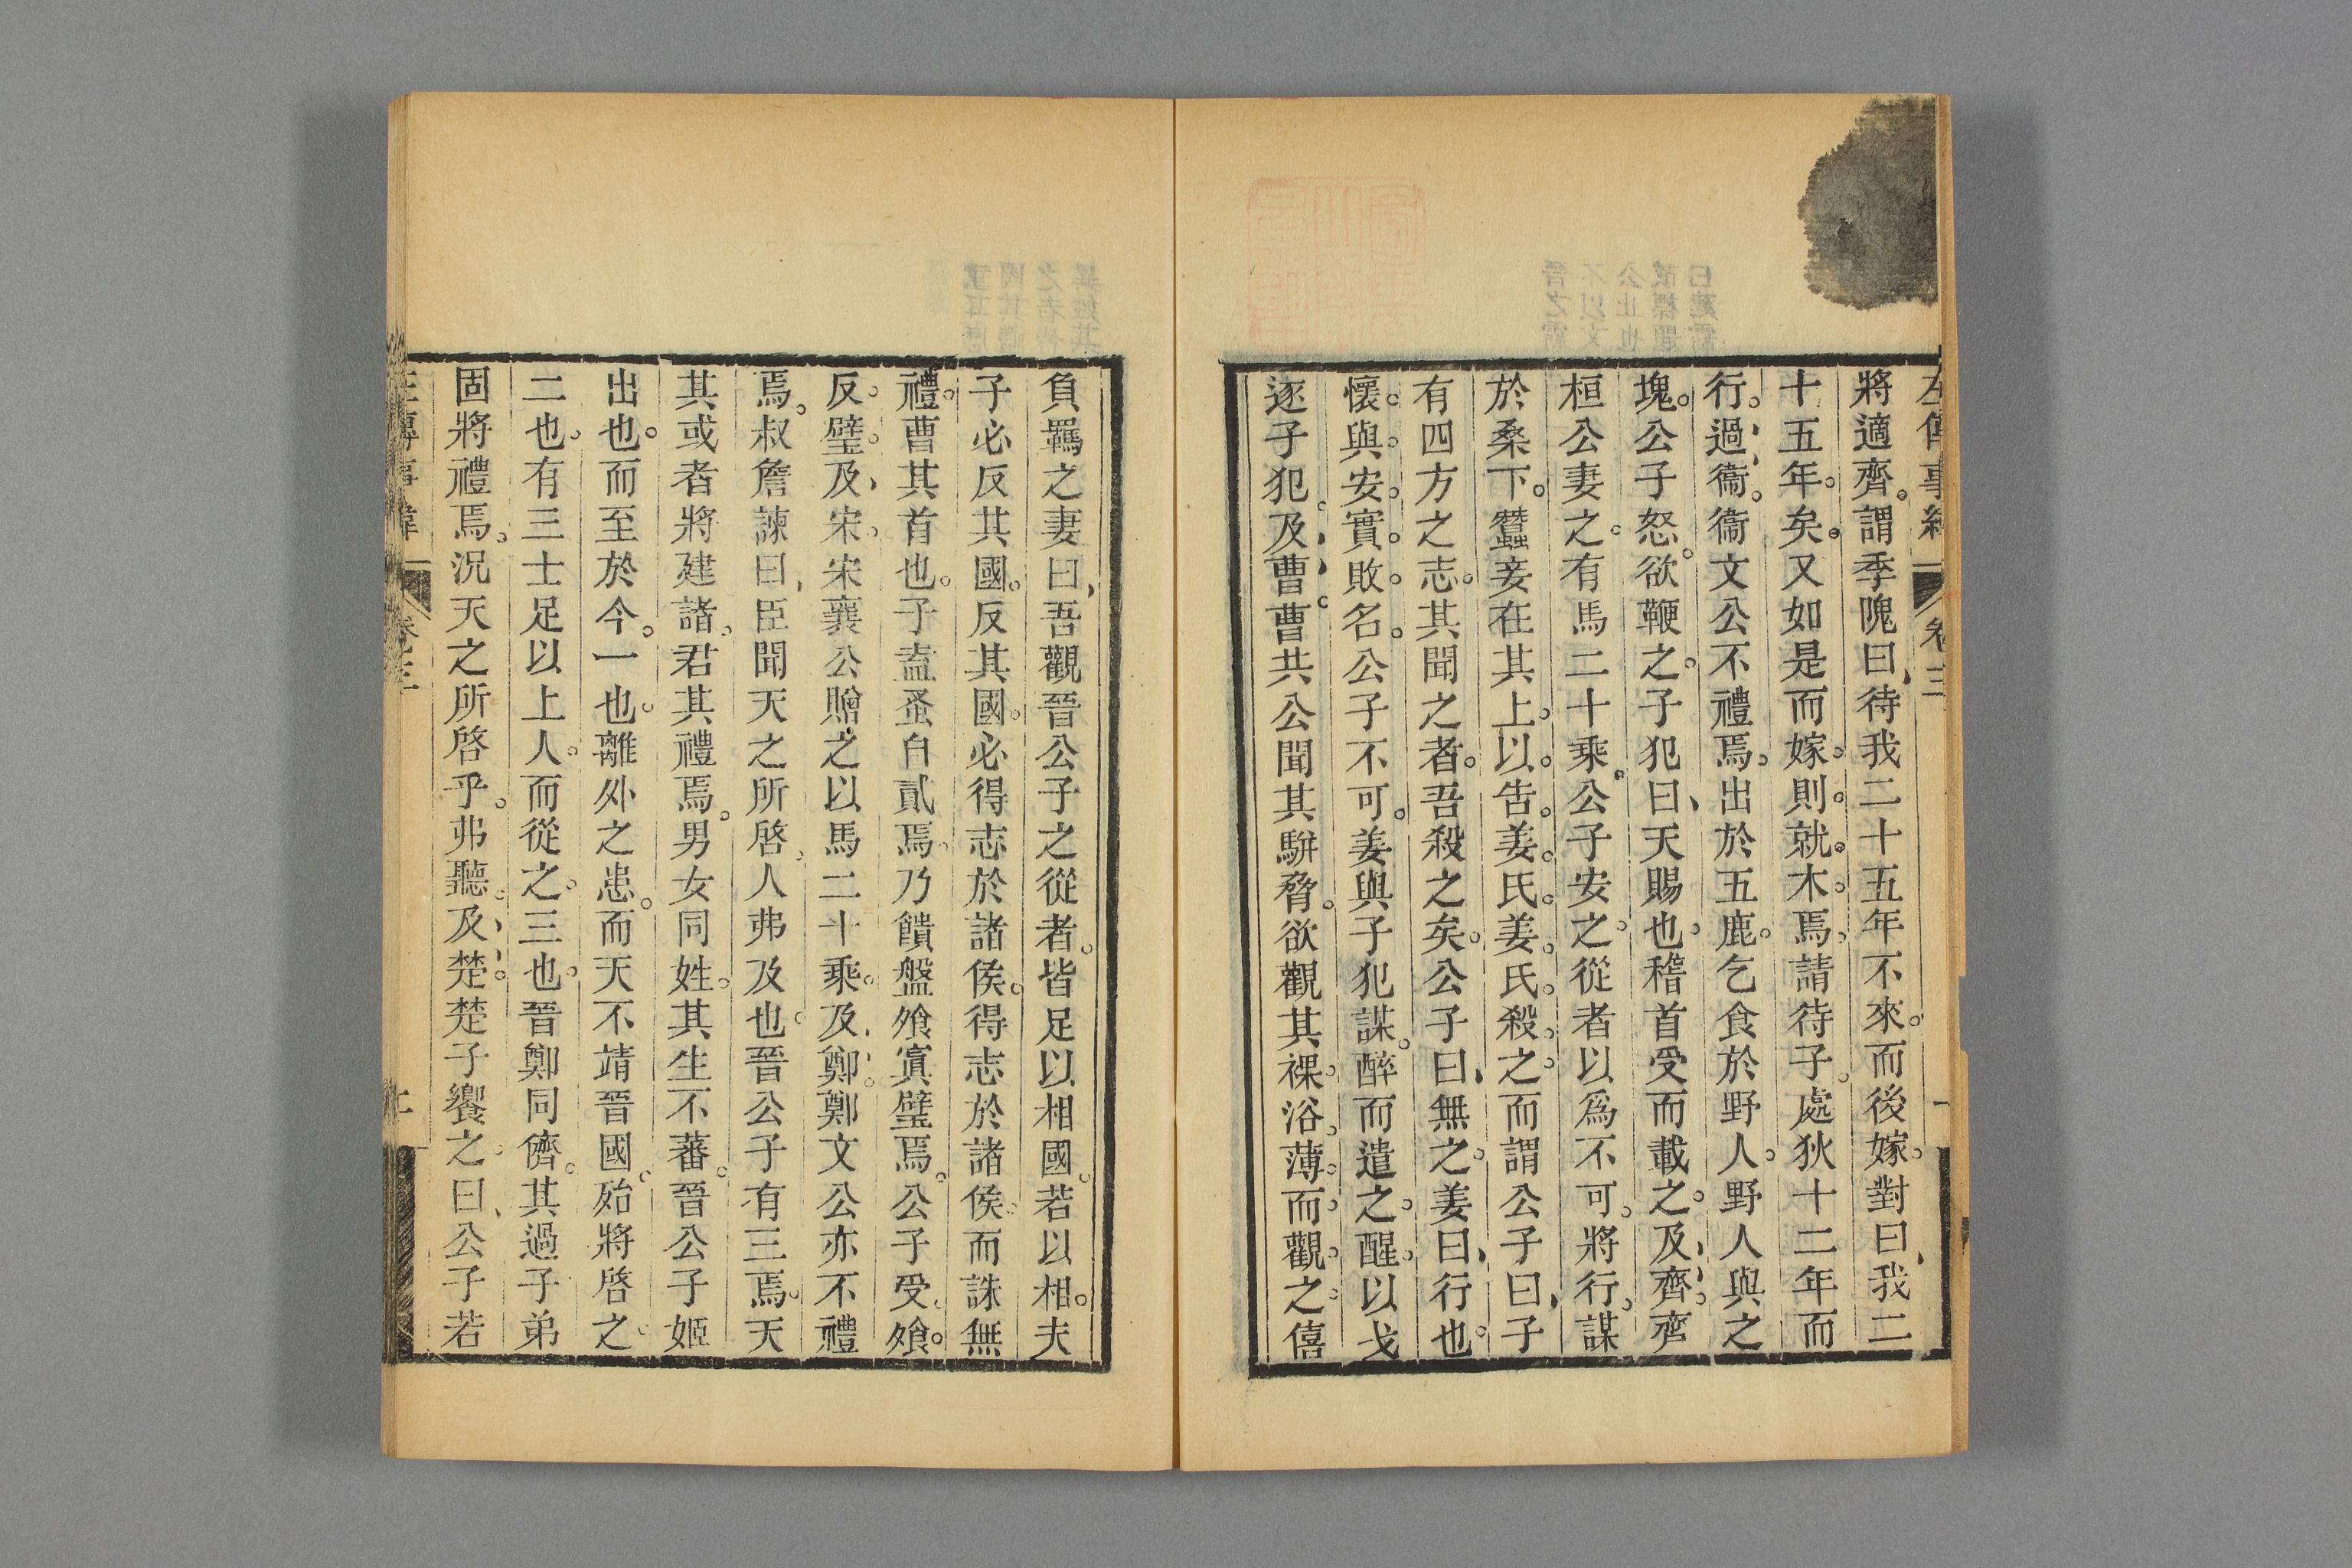 左傳事緯 卷三 一
將適齊。謂季隗曰、待我二十五年不來。而後嫁。對曰、我二
十五年。矣。又如是而嫁。則。就。木。焉。請待子。處狄十二年而
行。過、衞。衞文公不禮焉。出於五鹿。乞食於野人。野人與之
塊。公子怒。欲鞭之。子犯曰、天賜也。稽首受而載之。及、齊。齊
桓公妻之。有馬二十乘。公子安之。從者以爲不可。將行。謀
於桑下。蠶妾在其上。以。告。姜。氏。姜。氏。殺。之。而謂公子曰、子
有四方之志。其聞之者。吾殺之矣。公子曰、無之。姜曰、行也。
懷。與。安。實。敗。名。公子不可。姜與子犯謀。醉而遣之。醒。以戈
逐子犯。及、曹。曹共公聞其駢脅。欲觀其裸。浴。薄。而。觀。之。僖
負羈之妻曰、吾觀晉公子之從者。皆足以相國。若以相。夫
子必反其國。反其國。必得志於諸侯。得志於諸侯。而誅無
禮。曹其首也。子盍蚤自貳焉。乃饋盤飧寘璧焉。公子受。飧。
反。璧。及、宋。宋襄公贈之以馬二十乘。及、鄭。鄭文公亦不禮
焉。叔詹諫曰、臣聞天之所啓。人弗及也。晉公子有三焉。天
其或者將建諸。君其禮焉。男女同姓。其生不蕃。晉公子姬
出也。而至於今。一也。離外之患。而天不靖晉國。殆將啓之。
二也。有三士足以上人。而從之。三也。晉鄭同儕。其過子弟
固將禮焉。況天之所啓乎。弗聽。及、楚。楚子饗之。曰、公子若
左傳事緯 卷三 二